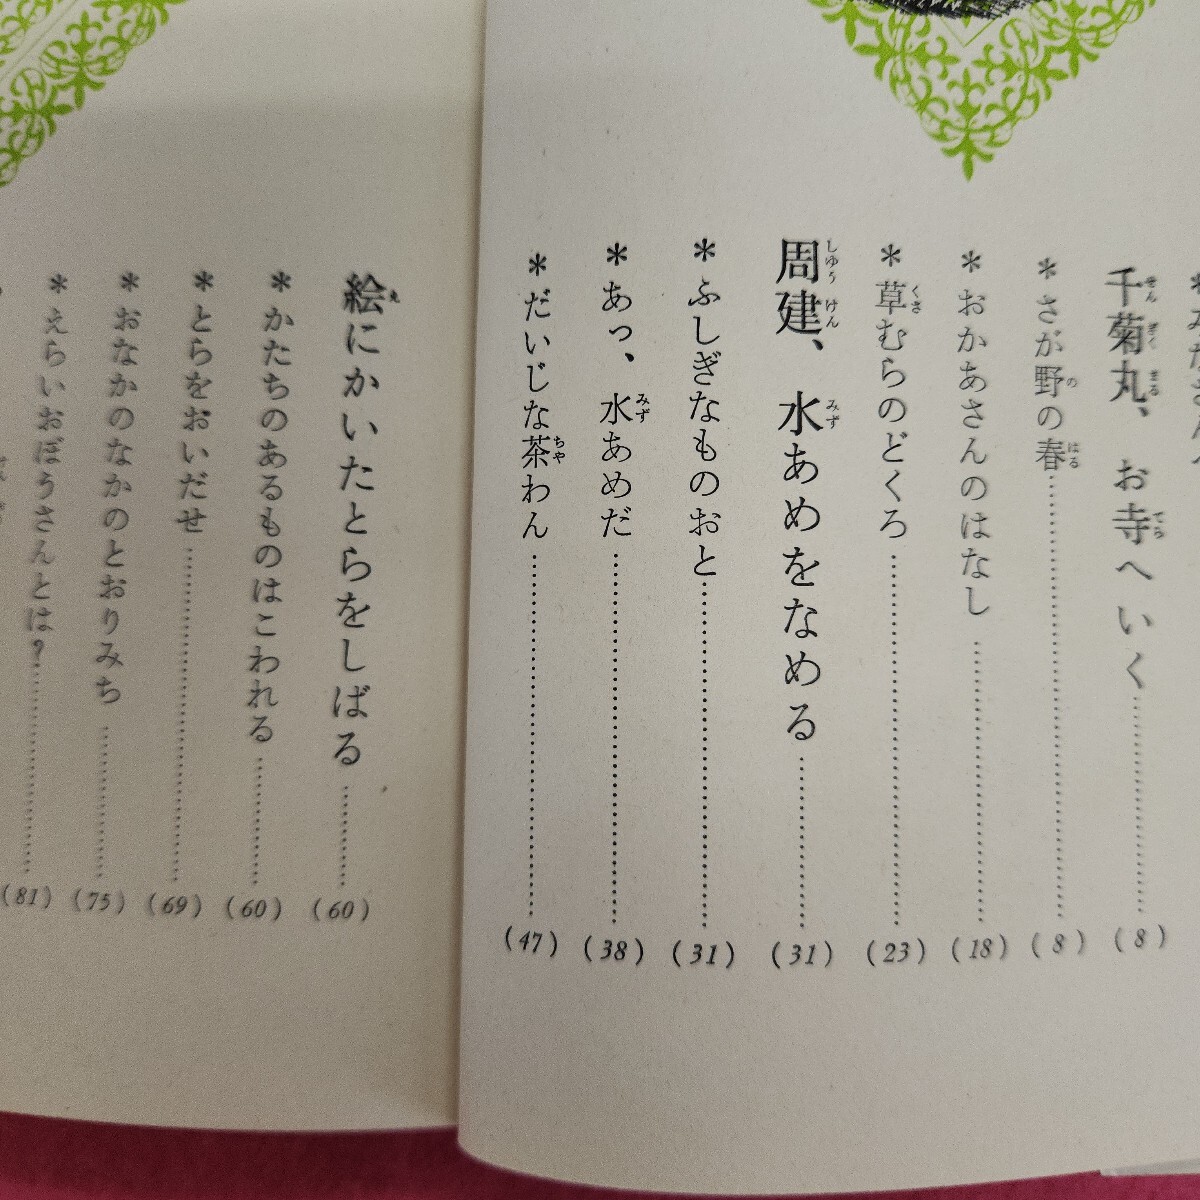 千菊丸、お寺へいく……(8)
＊さが野の春……(8)
＊おかあさんのはなし……(18)
＊草むらのどくろ……(23)
周建、水あめをなめる……(31)
＊ふしぎなものおと……(31)
＊あっ、水あめだ……(38)
＊だいじな茶わん……(47)
絵にかいたとらをしばる……(60)
＊かたちのあるものはこわれる……(60)
＊とらをおいだせ……(69)
＊おなかのなかのとおりみち……(75)
＊えらいおぼうさんとは？……(81)